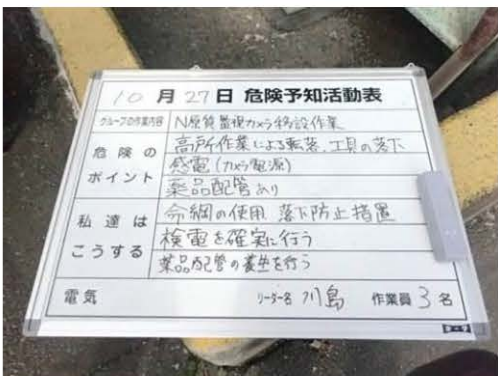 10月27日 危険予知活動表
グループの作業内容 N原質監視カメラ移設作業
危険のポイント 高所作業による転落、工具の落下
感電(カメラ電源)
薬品配管あり
私達はこうする 命綱の使用 落下防止措置
検電を確実に行う
薬品配管の養生を行う
電気 リーダー名 川島 作業員 3名